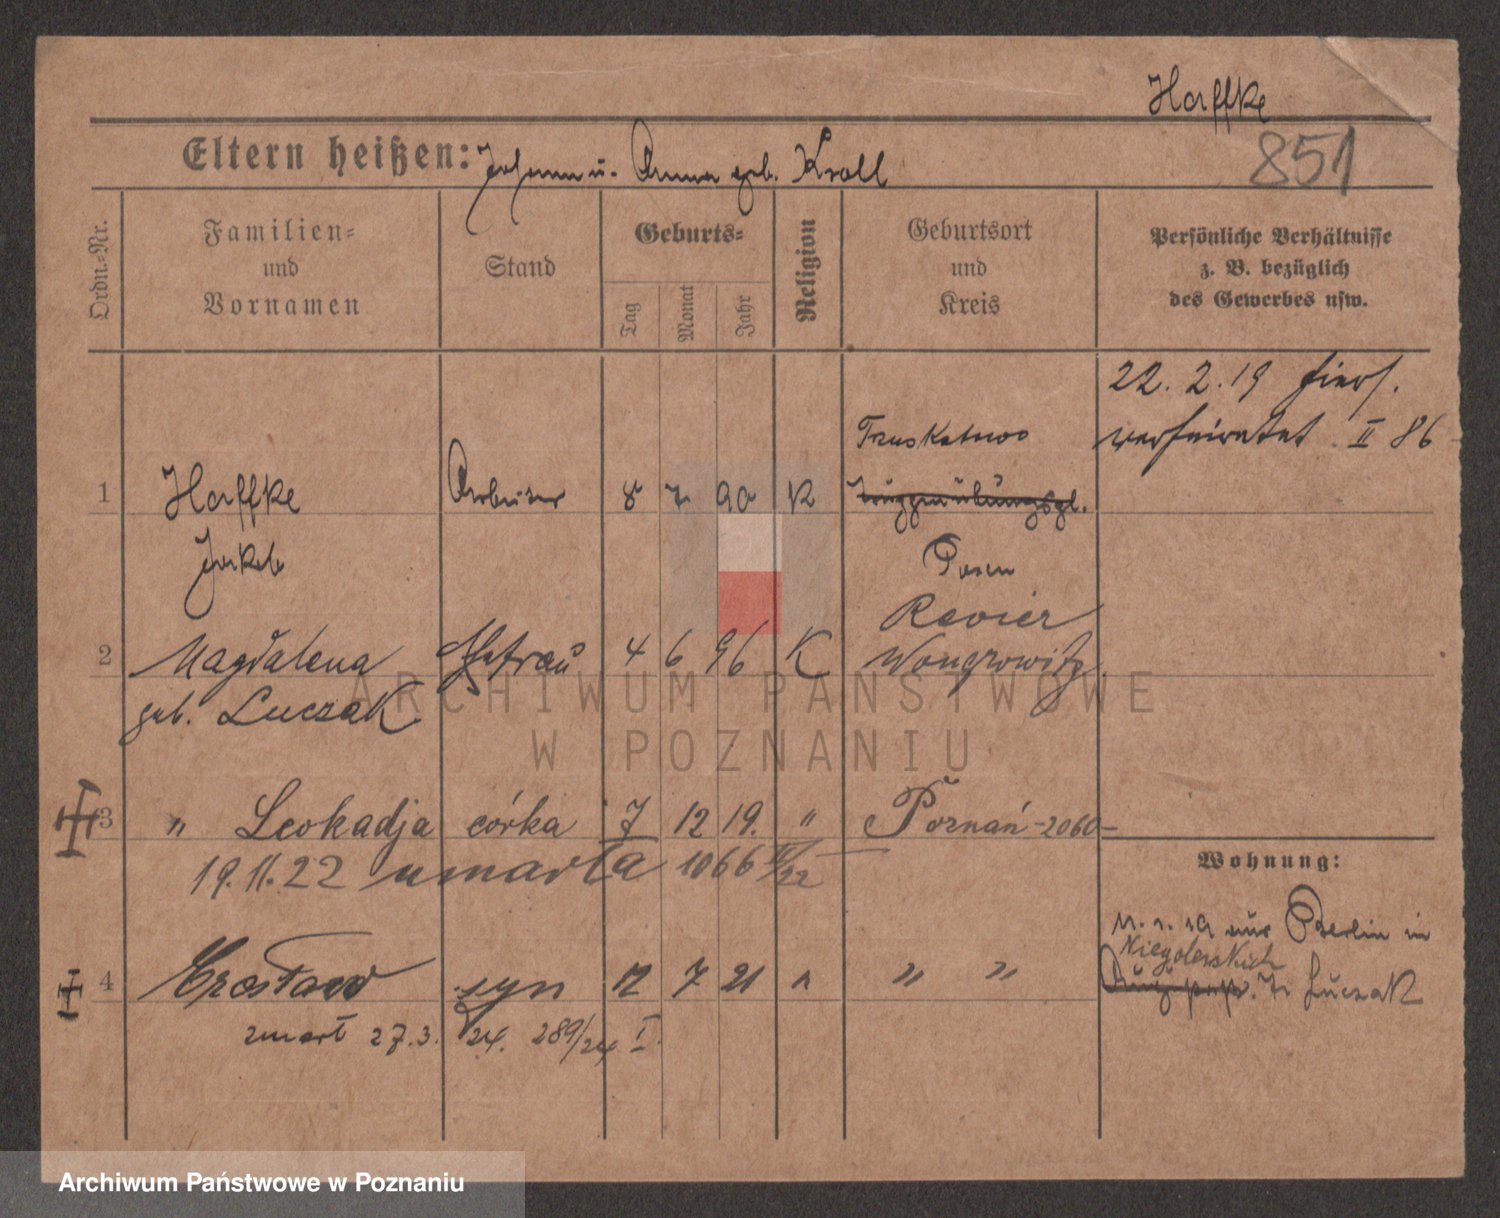 Haffke
851
Eltern heißen: Johann u. Anna geb. Kroll
Ordn.-Nr.
Familien-
und
Vornamen
Stand
Geburts-
Tag
Monat
Jahr
Religion
Geburtsort
und
Kreis
Persönliche Verhältnisse
z. B. bezüglich
des Gewerbes usw.
22. 2. 19 hiers.
verheiratet. II 86
1 Haffke Arbeiter 8 7 90 K
Jakob
Posen
Revier
2 Magdalena Ehefrau 4 6 96 K Wongrowitz
geb. Luczak
3 " Leokadja córka 7 12 19. " Poznań - 2060 -
19. 11. 22 umarła 1066
4 syn 12 7 21 " " "
zmarł 27. 3. 24. 289/24 I
Wohnung:
aus Berlin in
Luczak
ARCHIWUM PAŃSTWOWE
W POZNANIU
Archiwum Państwowe w Poznaniu